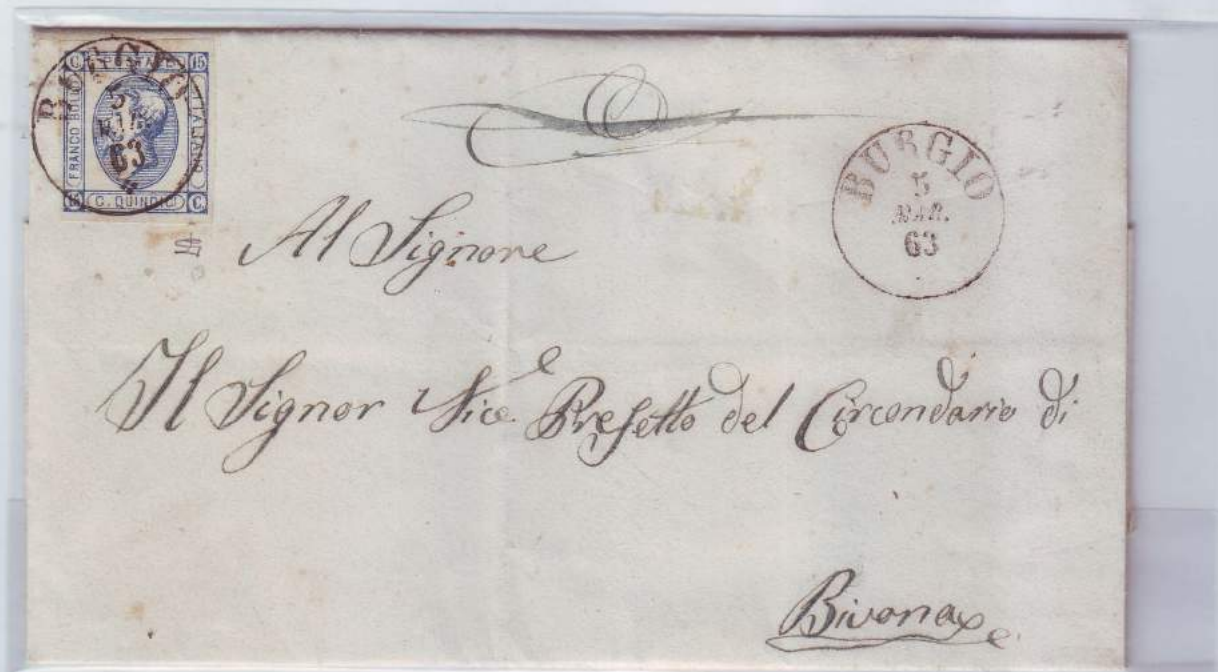 BURGIO
5
MAR
63
C. 15
FRANCO BOLLO
ITALIANO
15 C. QUINDICI C.
BURGIO
5
MAR.
63
Al Signore
Il Signor Vice Prefetto del Circondario di
Bivona